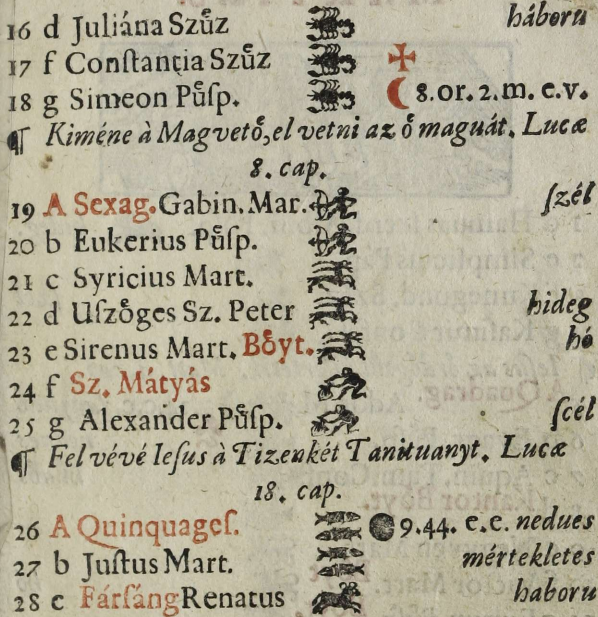 16 d Juliána Szűz háboru
17 f Conſtantia Szűz
18 g Simeon Pűſp. 8. or. 2. m. e. v.
¶ Kiméne à Magvető, el vetni az ő maguát. Lucæ
8. cap.
19 A Sexag. Gabin. Mar. ſzél
20 b Eukerius Pűſp.
21 c Syricius Mart.
22 d Uſzőges Sz. Peter hideg
23 e Sirenus Mart. Bőyt. hó
24 f Sz. Mátyás
25 g Alexander Pűſp. ſcél
¶ Fel vévé Ieſus à Tizenkét Tanituanyt. Lucæ
18. cap.
26 A Quinquageſ. 9. 44. e. e. nedues
27 b Juſtus Mart. mértekletes
28 c Fárſáng Renatus haboru